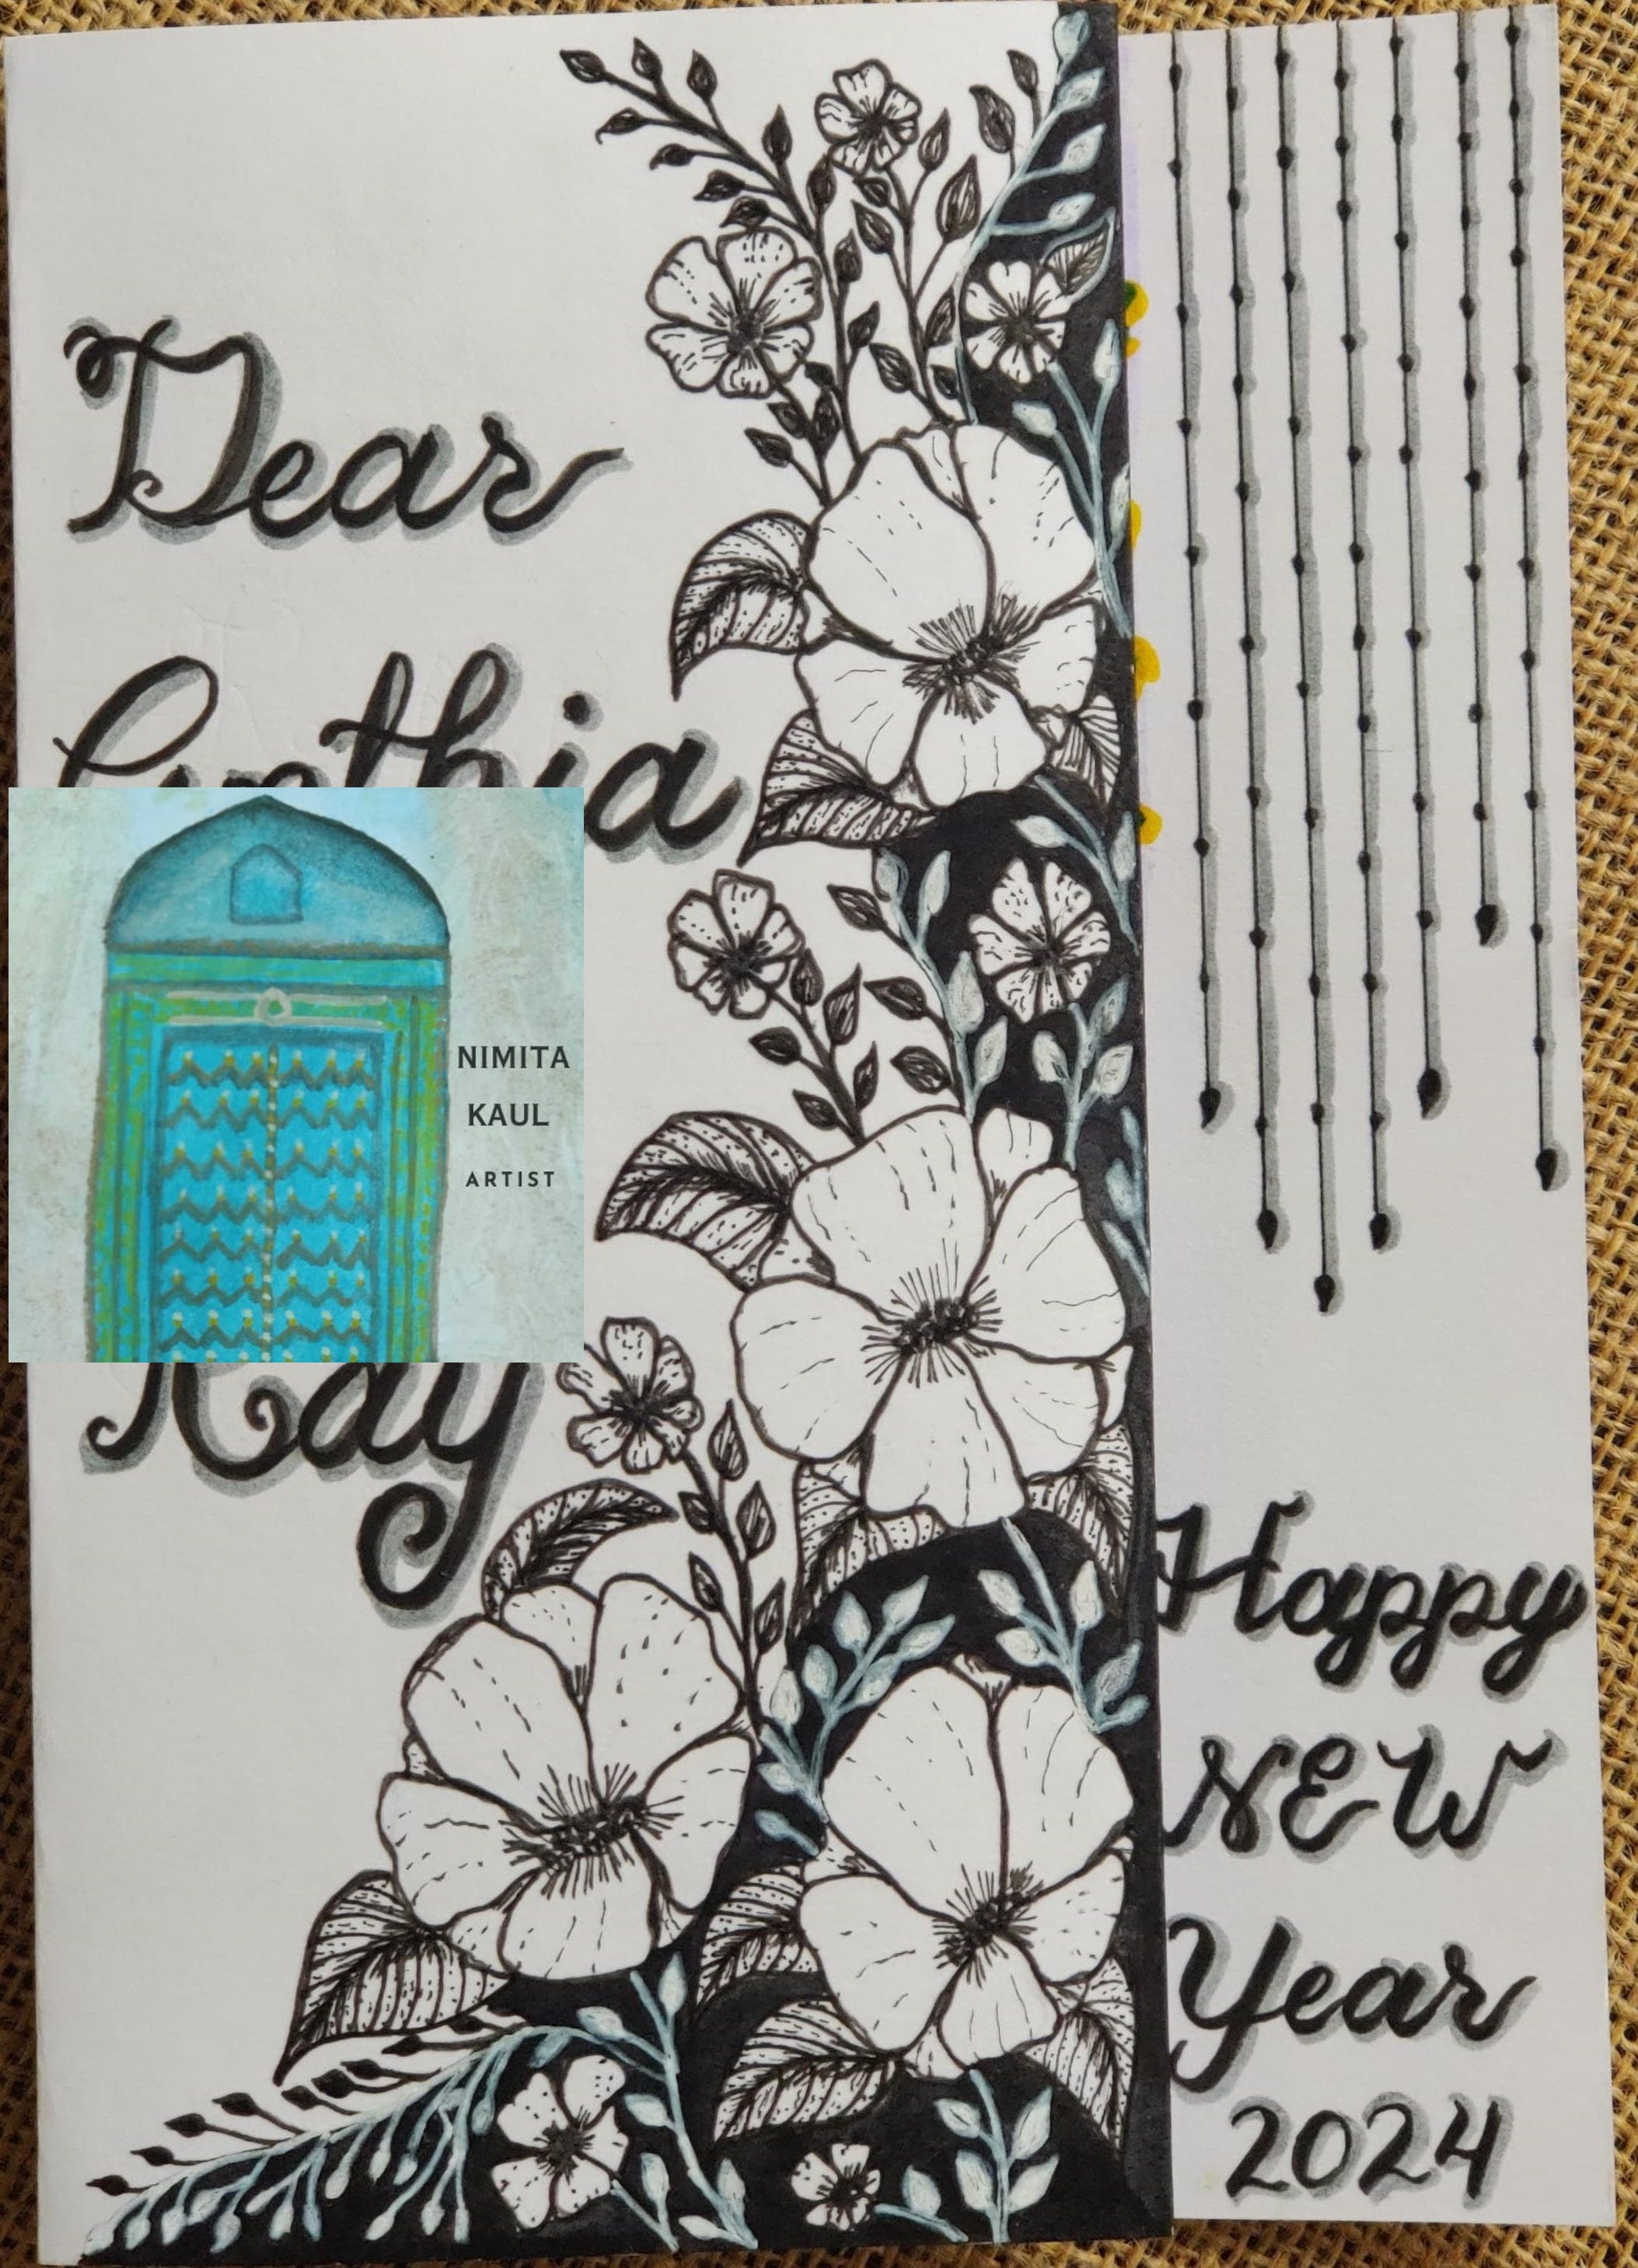 Dear
Cynthia
NIMITA
KAUL
ARTIST
Happy
NEW
Year
2024